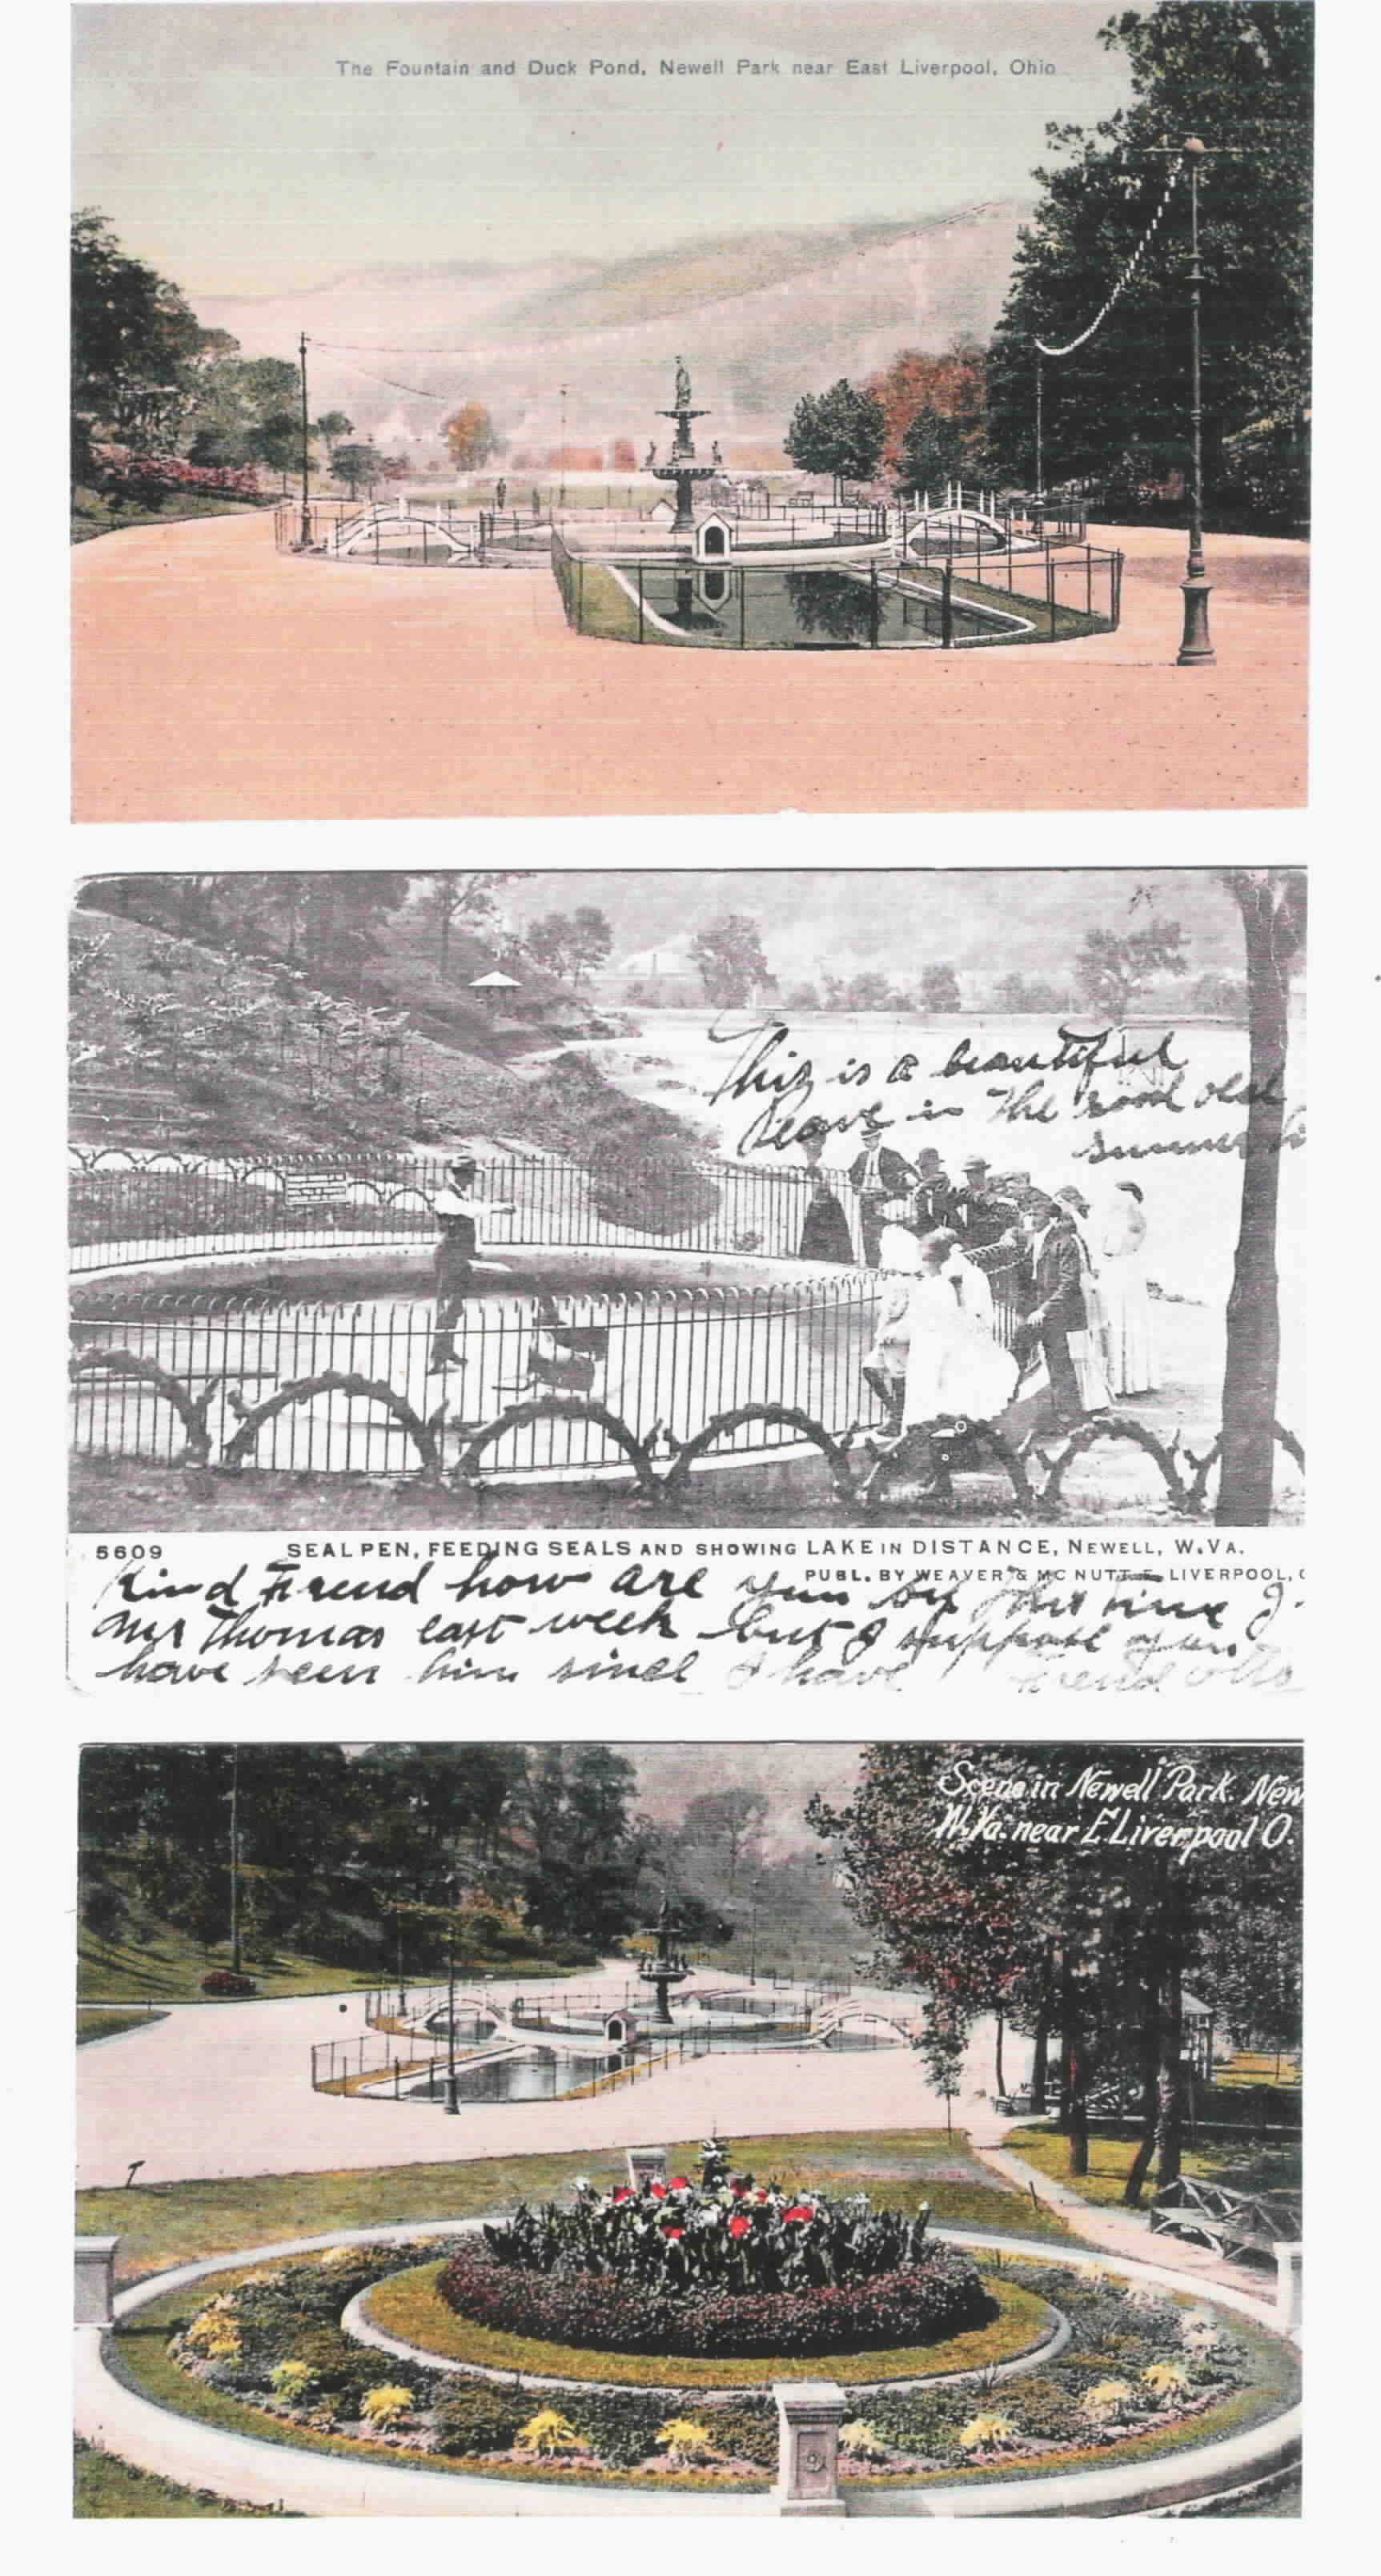 The Fountain and Duck Pond, Newell Park near East Liverpool, Ohio
This is a beautiful
in the good old
summer
5609 SEAL PEN, FEEDING SEALS AND SHOWING LAKE IN DISTANCE, NEWELL, W.VA.
PUBL. BY WEAVER & MC NUTT E. LIVERPOOL,
Kind Friend how are you by this time I
Mr Thomas last week but I suppose you
have seen him since I have Friend
Scene in Newell Park. New
W.Va. near E.Liverpool O.